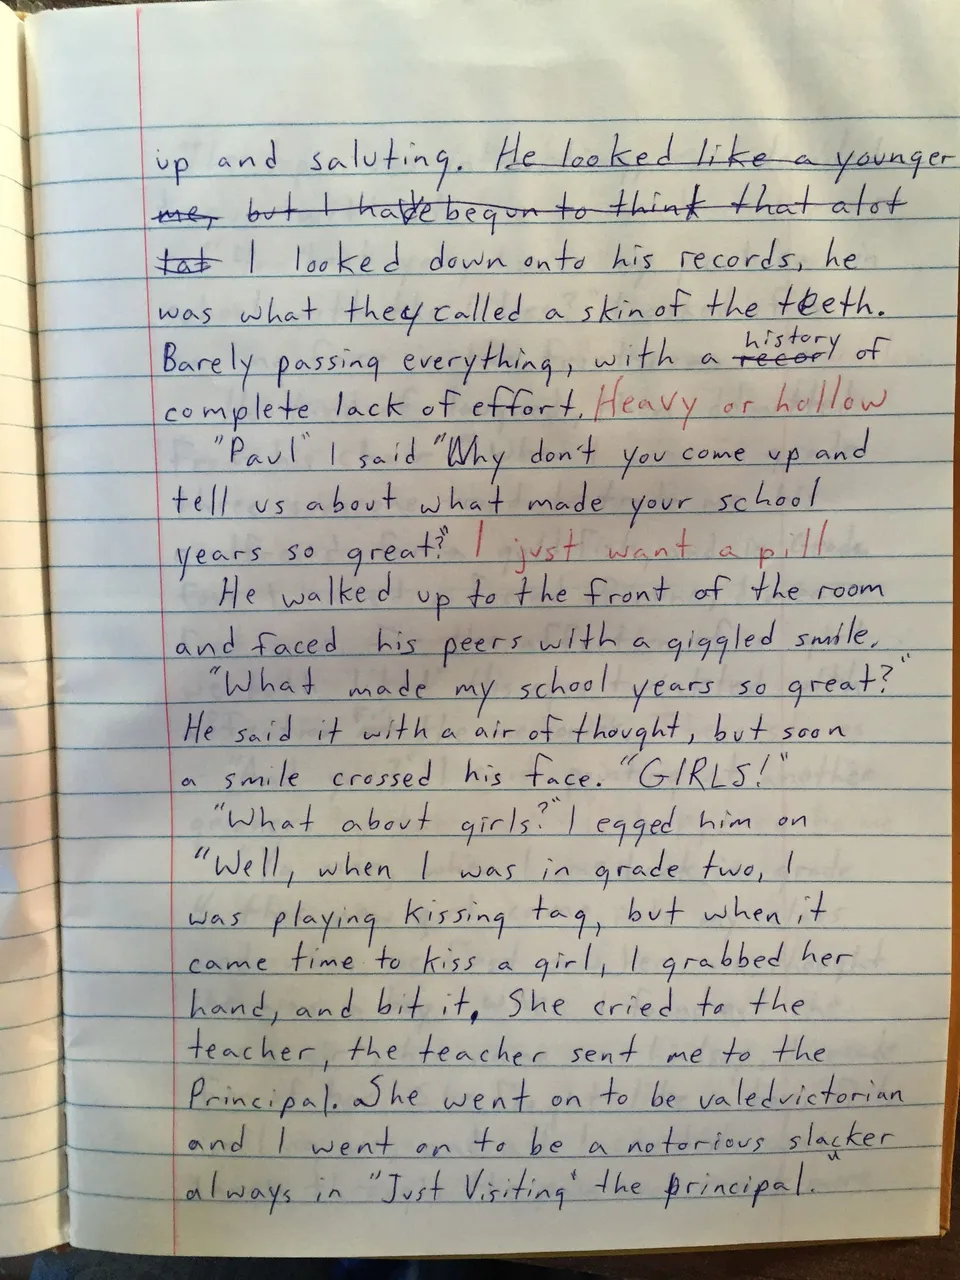 up and saluting. He looked like a younger
me, but I have begun to think that alot
tat I looked down onto his records, he
was what they called a skin of the teeth.
Barely passing everything, with a recor history of
complete lack of effort. Heavy or hollow
"Paul" I said "Why don't you come up and
tell us about what made your school
years so great?" I just want a pill
He walked up to the front of the room
and faced his peers with a giggled smile.
"What made my school years so great?"
He said it with a air of thought, but soon
a smile crossed his face. "GIRLS!"
"What about girls?" I egged him on
"Well, when I was in grade two, I
was playing kissing tag, but when it
came time to kiss a girl, I grabbed her
hand, and bit it. She cried to the
teacher, the teacher sent me to the
Principal. She went on to be valedvictorian
and I went on to be a notorious slacker
always in "Just Visiting" the principal."